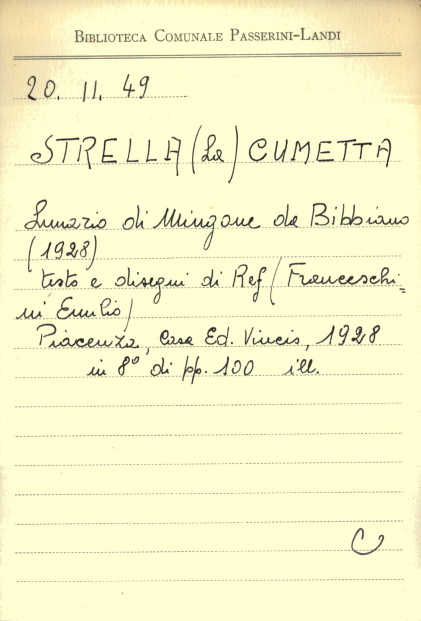 BIBLIOTECA COMUNALE PASSERINI-LANDI
20. 11. 49
STRELLA (La) CUMETTA
Lunario di Mingone da Bibbiano
(1928)
testo e disegni di Ref (Franceschi=
ni Emilio)
Piacenza, Casa Ed. Vincis, 1928
in 8° di pp. 100 ill.
C